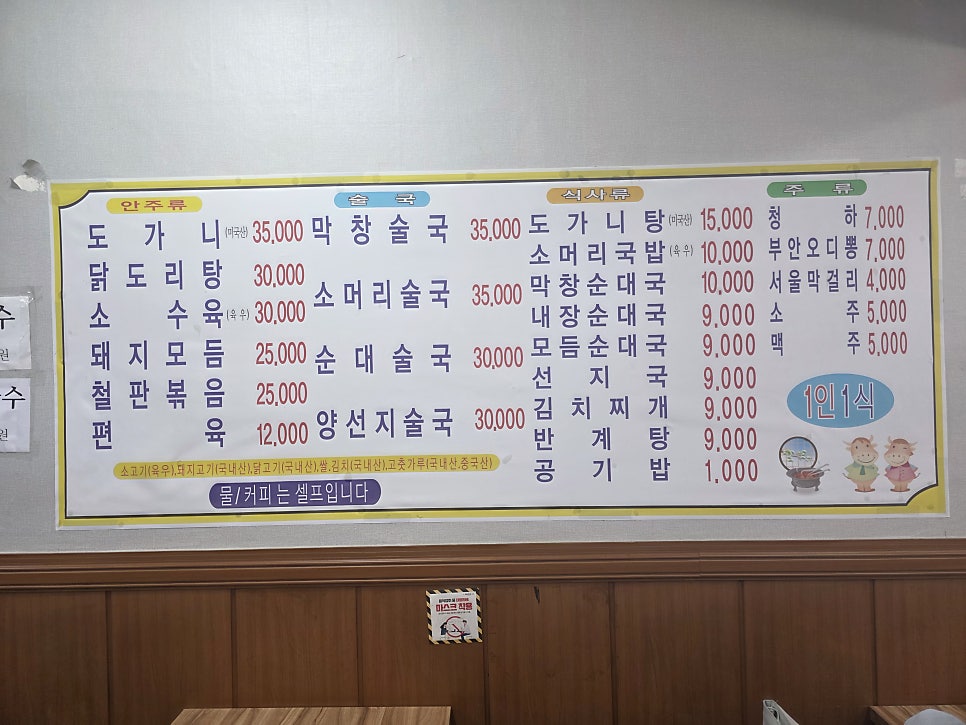 안주류
도가니(미국산) 35,000
닭도리탕 30,000
소수육(육우) 30,000
돼지모듬 25,000
철판볶음 25,000
편육 12,000
술국
막창술국 35,000
소머리술국 35,000
순대술국 30,000
양선지술국 30,000
식사류
도가니탕(미국산) 15,000
소머리국밥(육우) 10,000
막창순대국 10,000
내장순대국 9,000
모듬순대국 9,000
선지국 9,000
김치찌개 9,000
반계탕 9,000
공기밥 1,000
주류
청하 7,000
부안오디뽕 7,000
서울막걸리 4,000
소주 5,000
맥주 5,000
1인1식
소고기(육우),돼지고기(국내산),닭고기(국내산),쌀,김치(국내산),고춧가루(국내산,중국산)
물/커피는 셀프입니다
수
원
수
원
마스크 착용